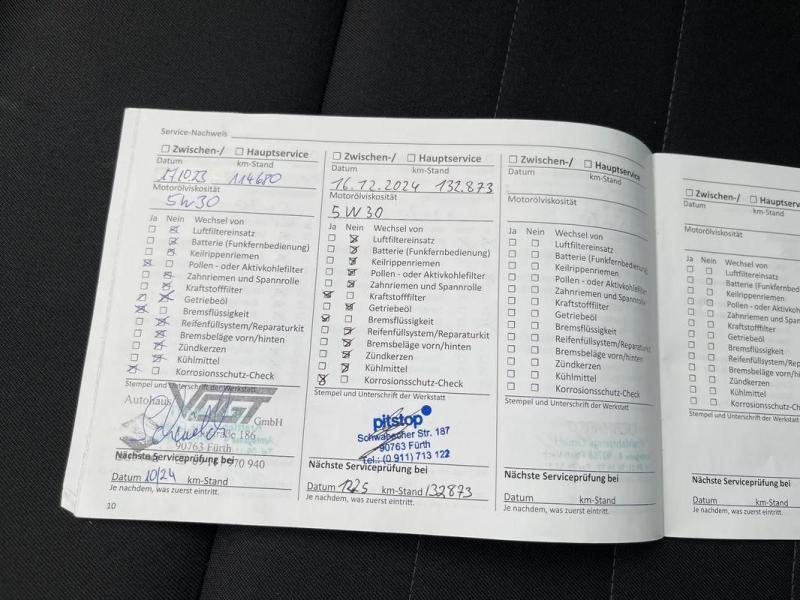 Service-Nachweis
☐ Zwischen-/ ☐ Hauptservice
Datum km-Stand
17/10/23 114680
Motorölviskosität
5W30
Ja Nein Wechsel von
Luftfiltereinsatz
Batterie (Funkfernbedienung)
Keilrippenriemen
Pollen - oder Aktivkohlefilter
Zahnriemen und Spannrolle
Kraftstofffilter
Getriebeöl
Bremsflüssigkeit
Reifenfüllsystem/Reparaturkit
Bremsbeläge vorn/hinten
Zündkerzen
Kühlmittel
Korrosionsschutz-Check
Stempel und Unterschrift der Werkstatt
Autohaus VOGT GmbH
186
90763 Fürth
970 940
Nächste Serviceprüfung bei
Datum 10/24 km-Stand
Je nachdem, was zuerst eintritt.
10
☐ Zwischen-/ ☐ Hauptservice
Datum km-Stand
16.12.2024 132.873
Motorölviskosität
5W30
Ja Nein Wechsel von
Luftfiltereinsatz
Batterie (Funkfernbedienung)
Keilrippenriemen
Pollen - oder Aktivkohlefilter
Zahnriemen und Spannrolle
Kraftstofffilter
Getriebeöl
Bremsflüssigkeit
Reifenfüllsystem/Reparaturkit
Bremsbeläge vorn/hinten
Zündkerzen
Kühlmittel
Korrosionsschutz-Check
Stempel und Unterschrift der Werkstatt
pitstop
Schwabacher Str. 187
90763 Fürth
Tel.: (0 911) 713 122
Nächste Serviceprüfung bei
Datum 1225 km-Stand 132873
Je nachdem, was zuerst eintritt.
☐ Zwischen-/ ☐ Hauptservice
Datum km-Stand
Motorölviskosität
Ja Nein Wechsel von
Luftfiltereinsatz
Batterie (Funkfernbedienung)
Keilrippenriemen
Pollen - oder Aktivkohlefilter
Zahnriemen und Spannrolle
Kraftstofffilter
Getriebeöl
Bremsflüssigkeit
Reifenfüllsystem/Reparaturkit
Bremsbeläge vorn/hinten
Zündkerzen
Kühlmittel
Korrosionsschutz-Check
Stempel und Unterschrift der Werkstatt
Nächste Serviceprüfung bei
Datum km-Stand
Je nachdem, was zuerst eintritt.
☐ Zwischen-/ ☐ Hauptserv
Datum km-Stand
Motorölviskosität
Ja Nein Wechsel von
Luftfiltereinsatz
Batterie (Funkfernbed
Keilrippenriemen
Pollen - oder Aktivko
Zahnriemen und Span
Kraftstofffilter
Getriebeöl
Bremsflüssigkeit
Reifenfüllsystem/Repa
Bremsbeläge vorn/hint
Zündkerzen
Kühlmittel
Korrosionsschutz-Check
Stempel und Unterschrift der Werkstatt
Nächste Serviceprüfung bei
Datum km-Stand
Je nachdem, was zuerst eintritt.